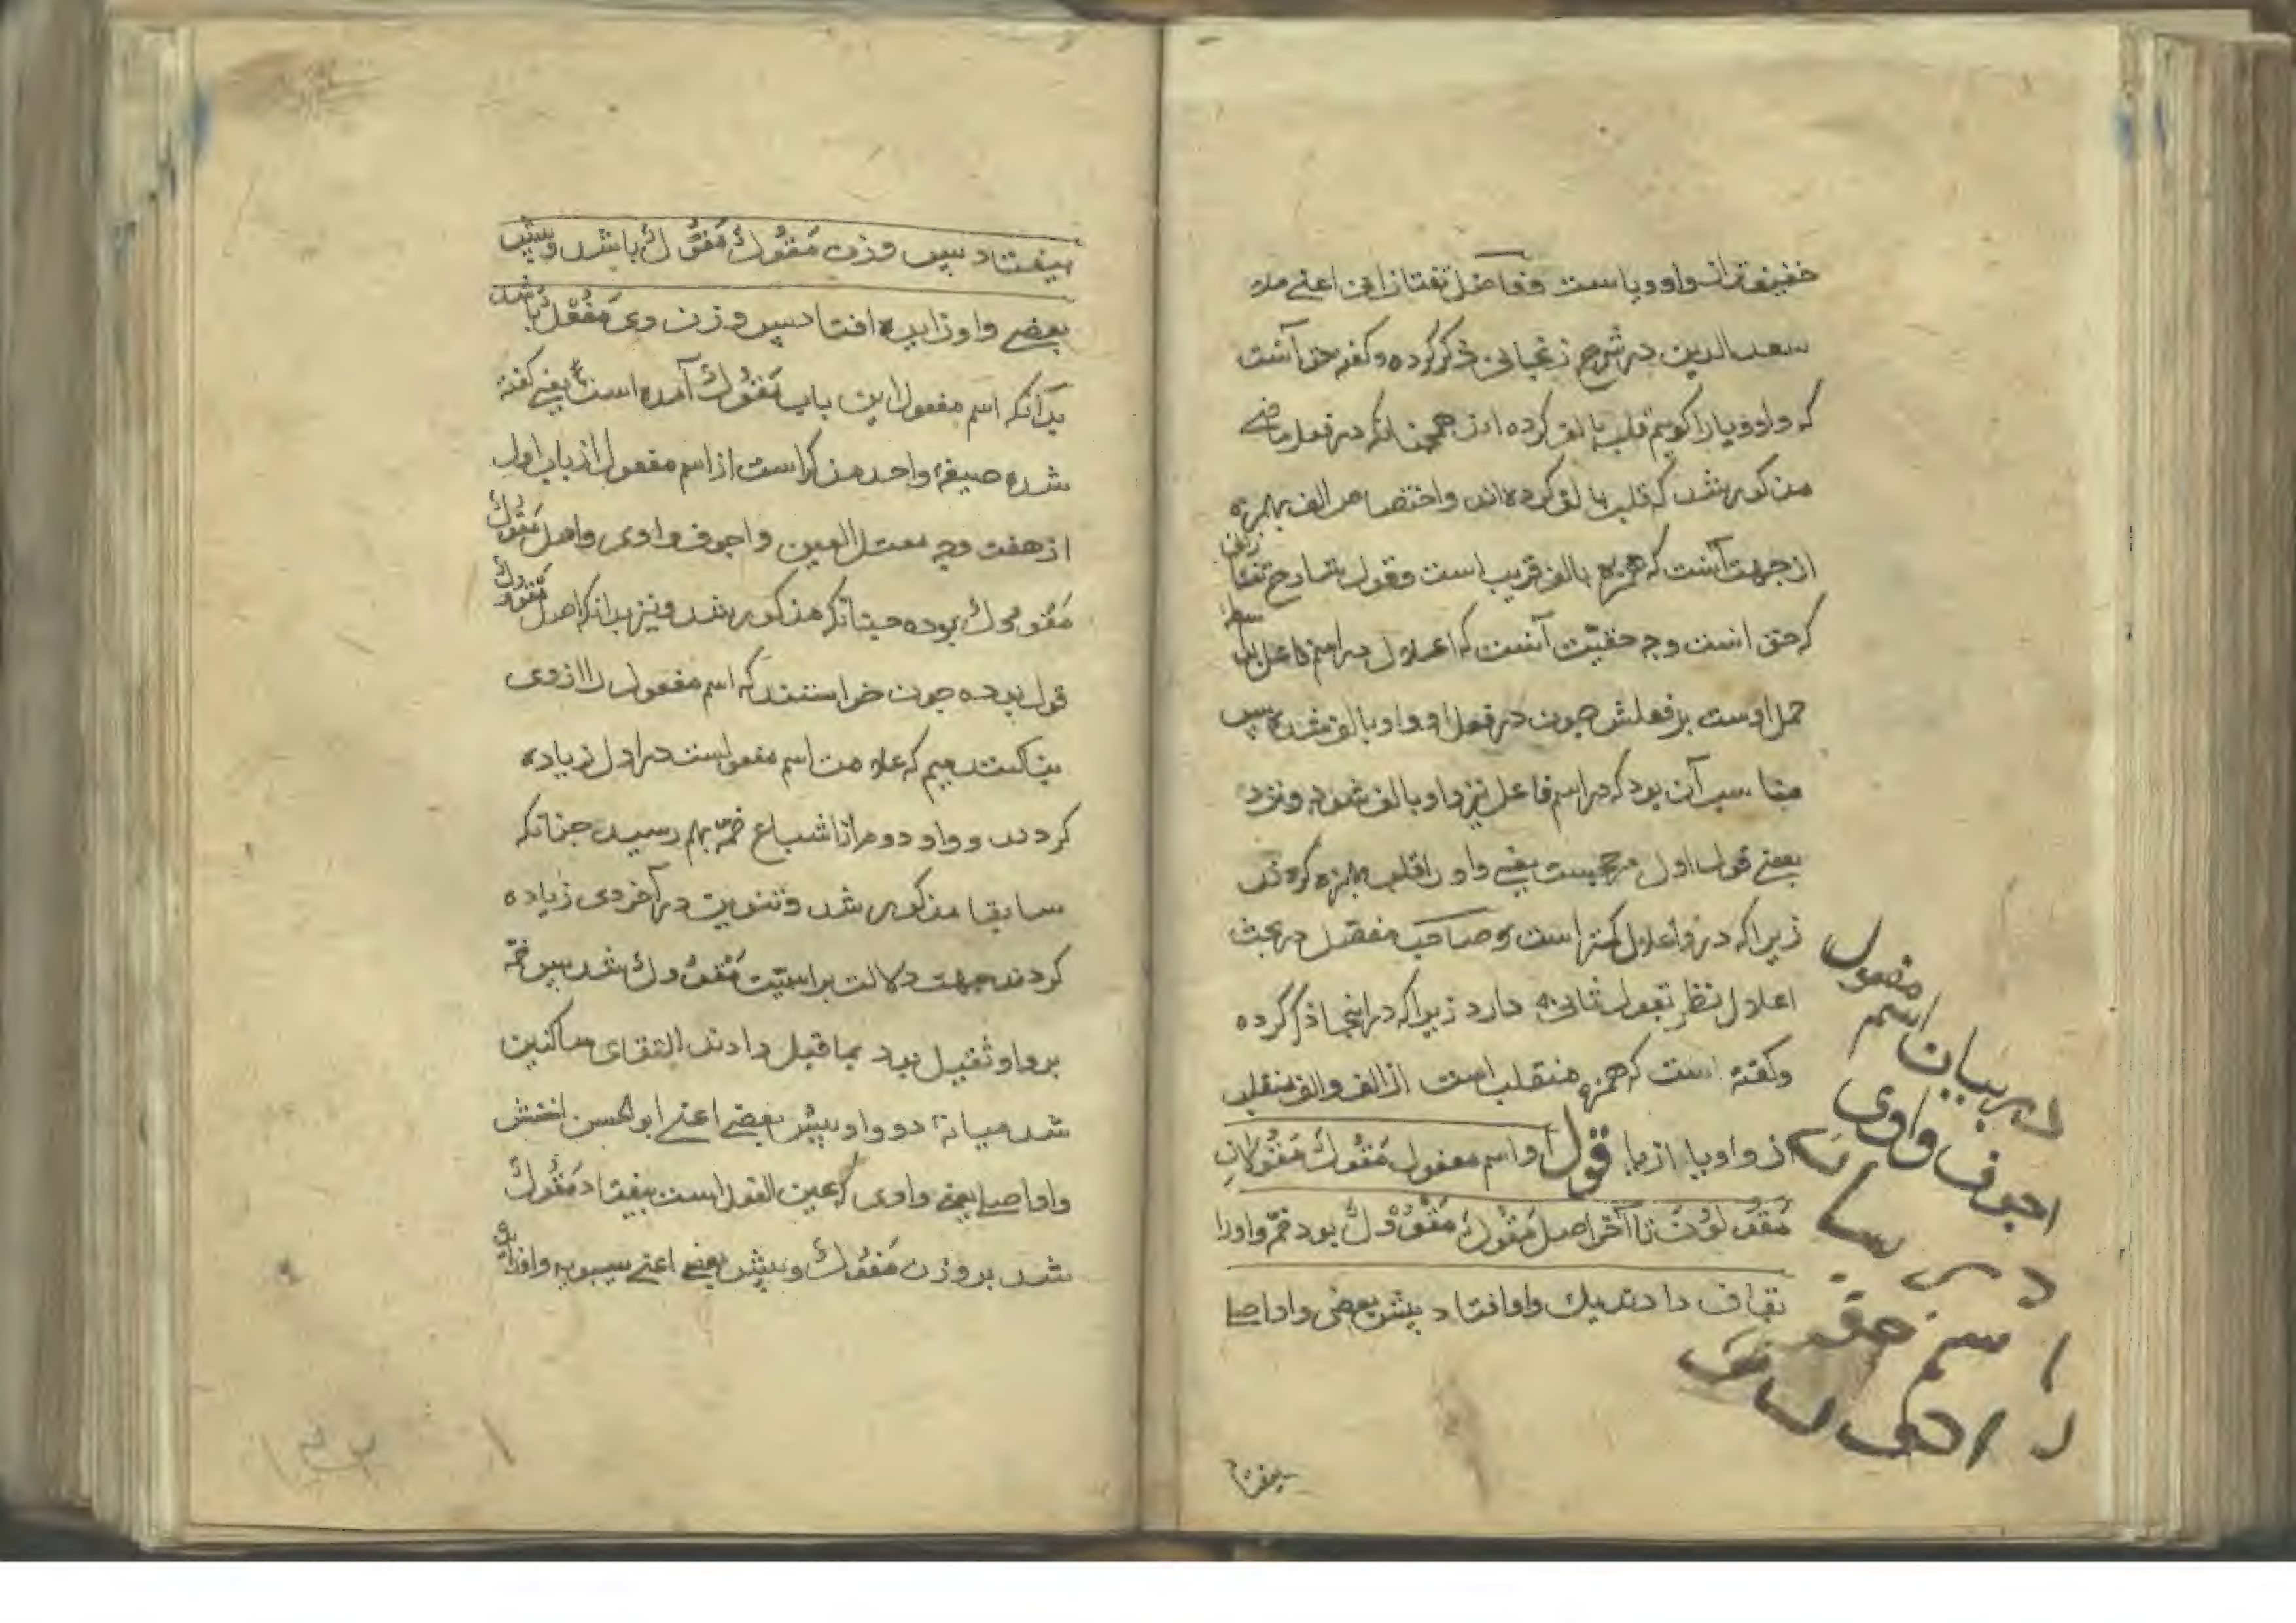 خفیفتر از واو و یاست و فاضل تفتازانی اعنی ملا
سعدالدین در شرح زنجانی ذکر کرده و گفته حق آنست
که واو و یا را کوئیم قلب بالف کرده اند همچنانکه در فعل ماضی
مذکور شد که قلب بالف کرده اند و اختصاص الف بهمزه
از جهت آنست که همزه بالف قریب است و قول شارح تفتازانی
که حق است وجه حقیت آنست که اعلال در اسم فاعل بواسطه
حمل اوست بر فعلش چون در فعل او واو بالف شده پس
مناسب آن بود که در اسم فاعل نیز واو بالف شود و نزد
بعضی قول اول مرجحست یعنی واو را قلب بهمزه کردن
زیرا که در و اعلال کمتر است و صاحب مفصل در بحث
اعلال نظر بقول ثانی دارد زیرا که در اینجا ذکر کرده
و گفته است که همزه منقلب است از الف و الف منقلب
از واو یا از یا قول او اسم مفعول مَقُولٌ مَقُولانِ
مَقُولُونَ تا آخر اصل مَقُولٌ مَقْوُولٌ بود ضمّ واو را
بقاف دادند یک واو افتاد پیش بعضی واو اصل
بیفتاد
در بیان اسم مفعول
اجوف واوی
بیفتاد پس وزن مَقُولٌ مَفُولٌ باشد و پیش
بعضی واو زایده افتاد پس وزن وی مَفُعْلٌ باشد
بدانکه اسم مفعول این باب مَقُولٌ آمده است یعنی گفته
شده صیغهٔ واحد مذکر است از اسم مفعول از باب اول
از هفت وجه معتل العین و اجوف واوی و اصل مَقُولٌ
مَقْوُولٌ بوده چنانکه مذکور شد و نیز بدانکه اصل مَقْوُولٌ
قول بوده چون خواستند که اسم مفعول را از وی
بنا کنند میم که علامت اسم مفعولست در اول زیاده
کردند و واو دوم از اشباع ضمّه بهم رسید چنانکه
سابقا مذکور شد و تنوین در آخر وی زیاده
کردند جهت دلالت بر اسمیّت مَقْوُولٌ شد پس ضمّه
بر واو ثقیل بود بماقبل دادند التقای ساکنین
شد میانهٔ دو واو پیش بعضی اعنی ابوالحسن اخفش
واو اصل یعنی واوی که عین الفعل است بیفتاد مَقُولٌ
شد بر وزن مَفُولٌ و پیش بعضی اعنی سیبویه واو زایده